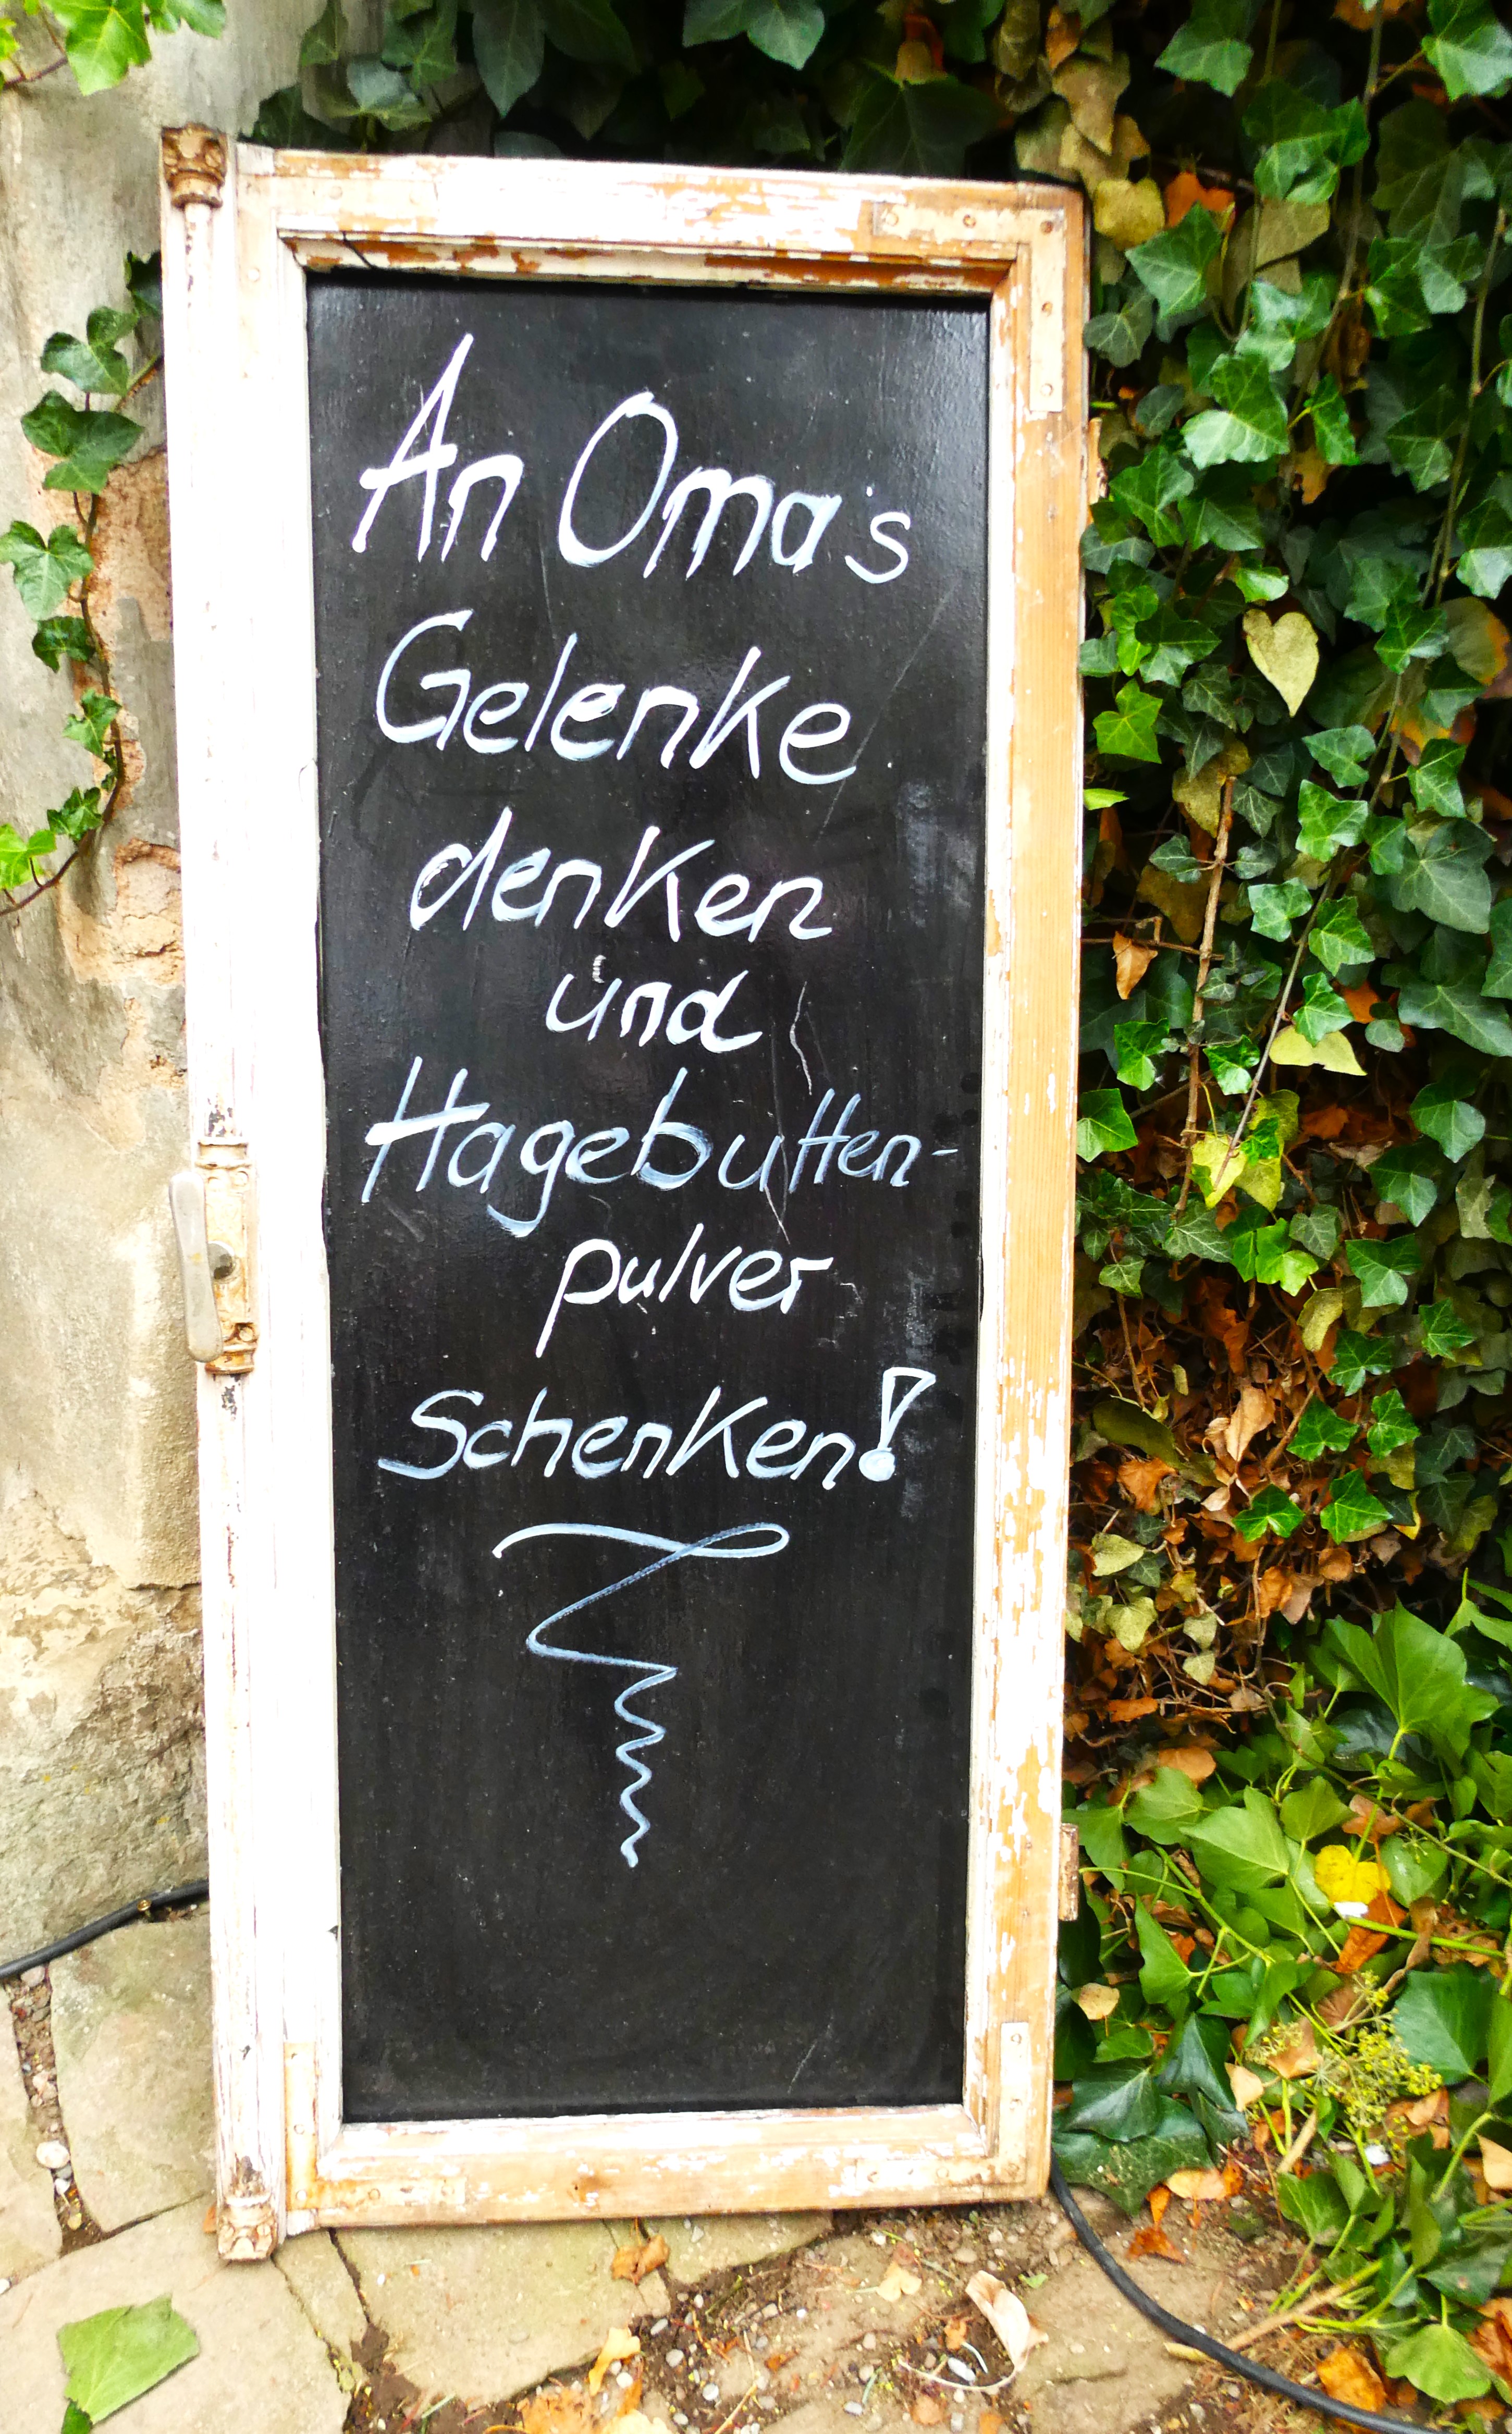 An Oma's
Gelenke
denken
und
Hagebutten-
pulver
Schenken!